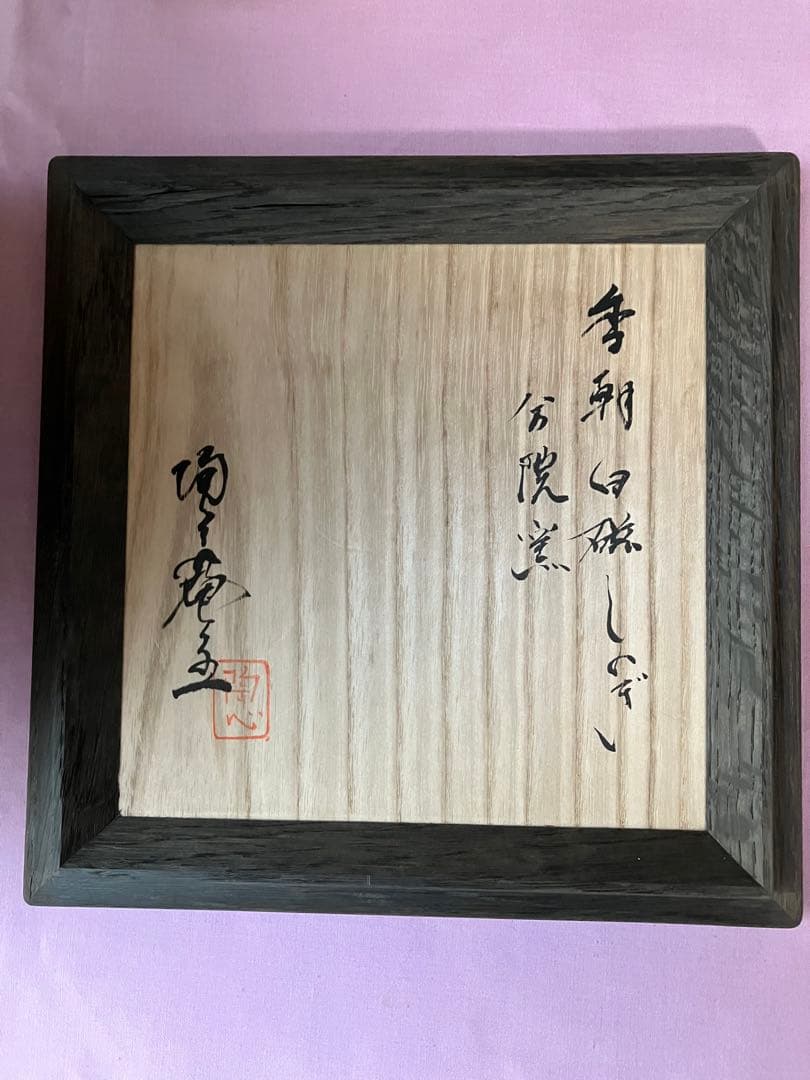 李朝白磁しのぎ
分院窯
陶々菴主
陶心